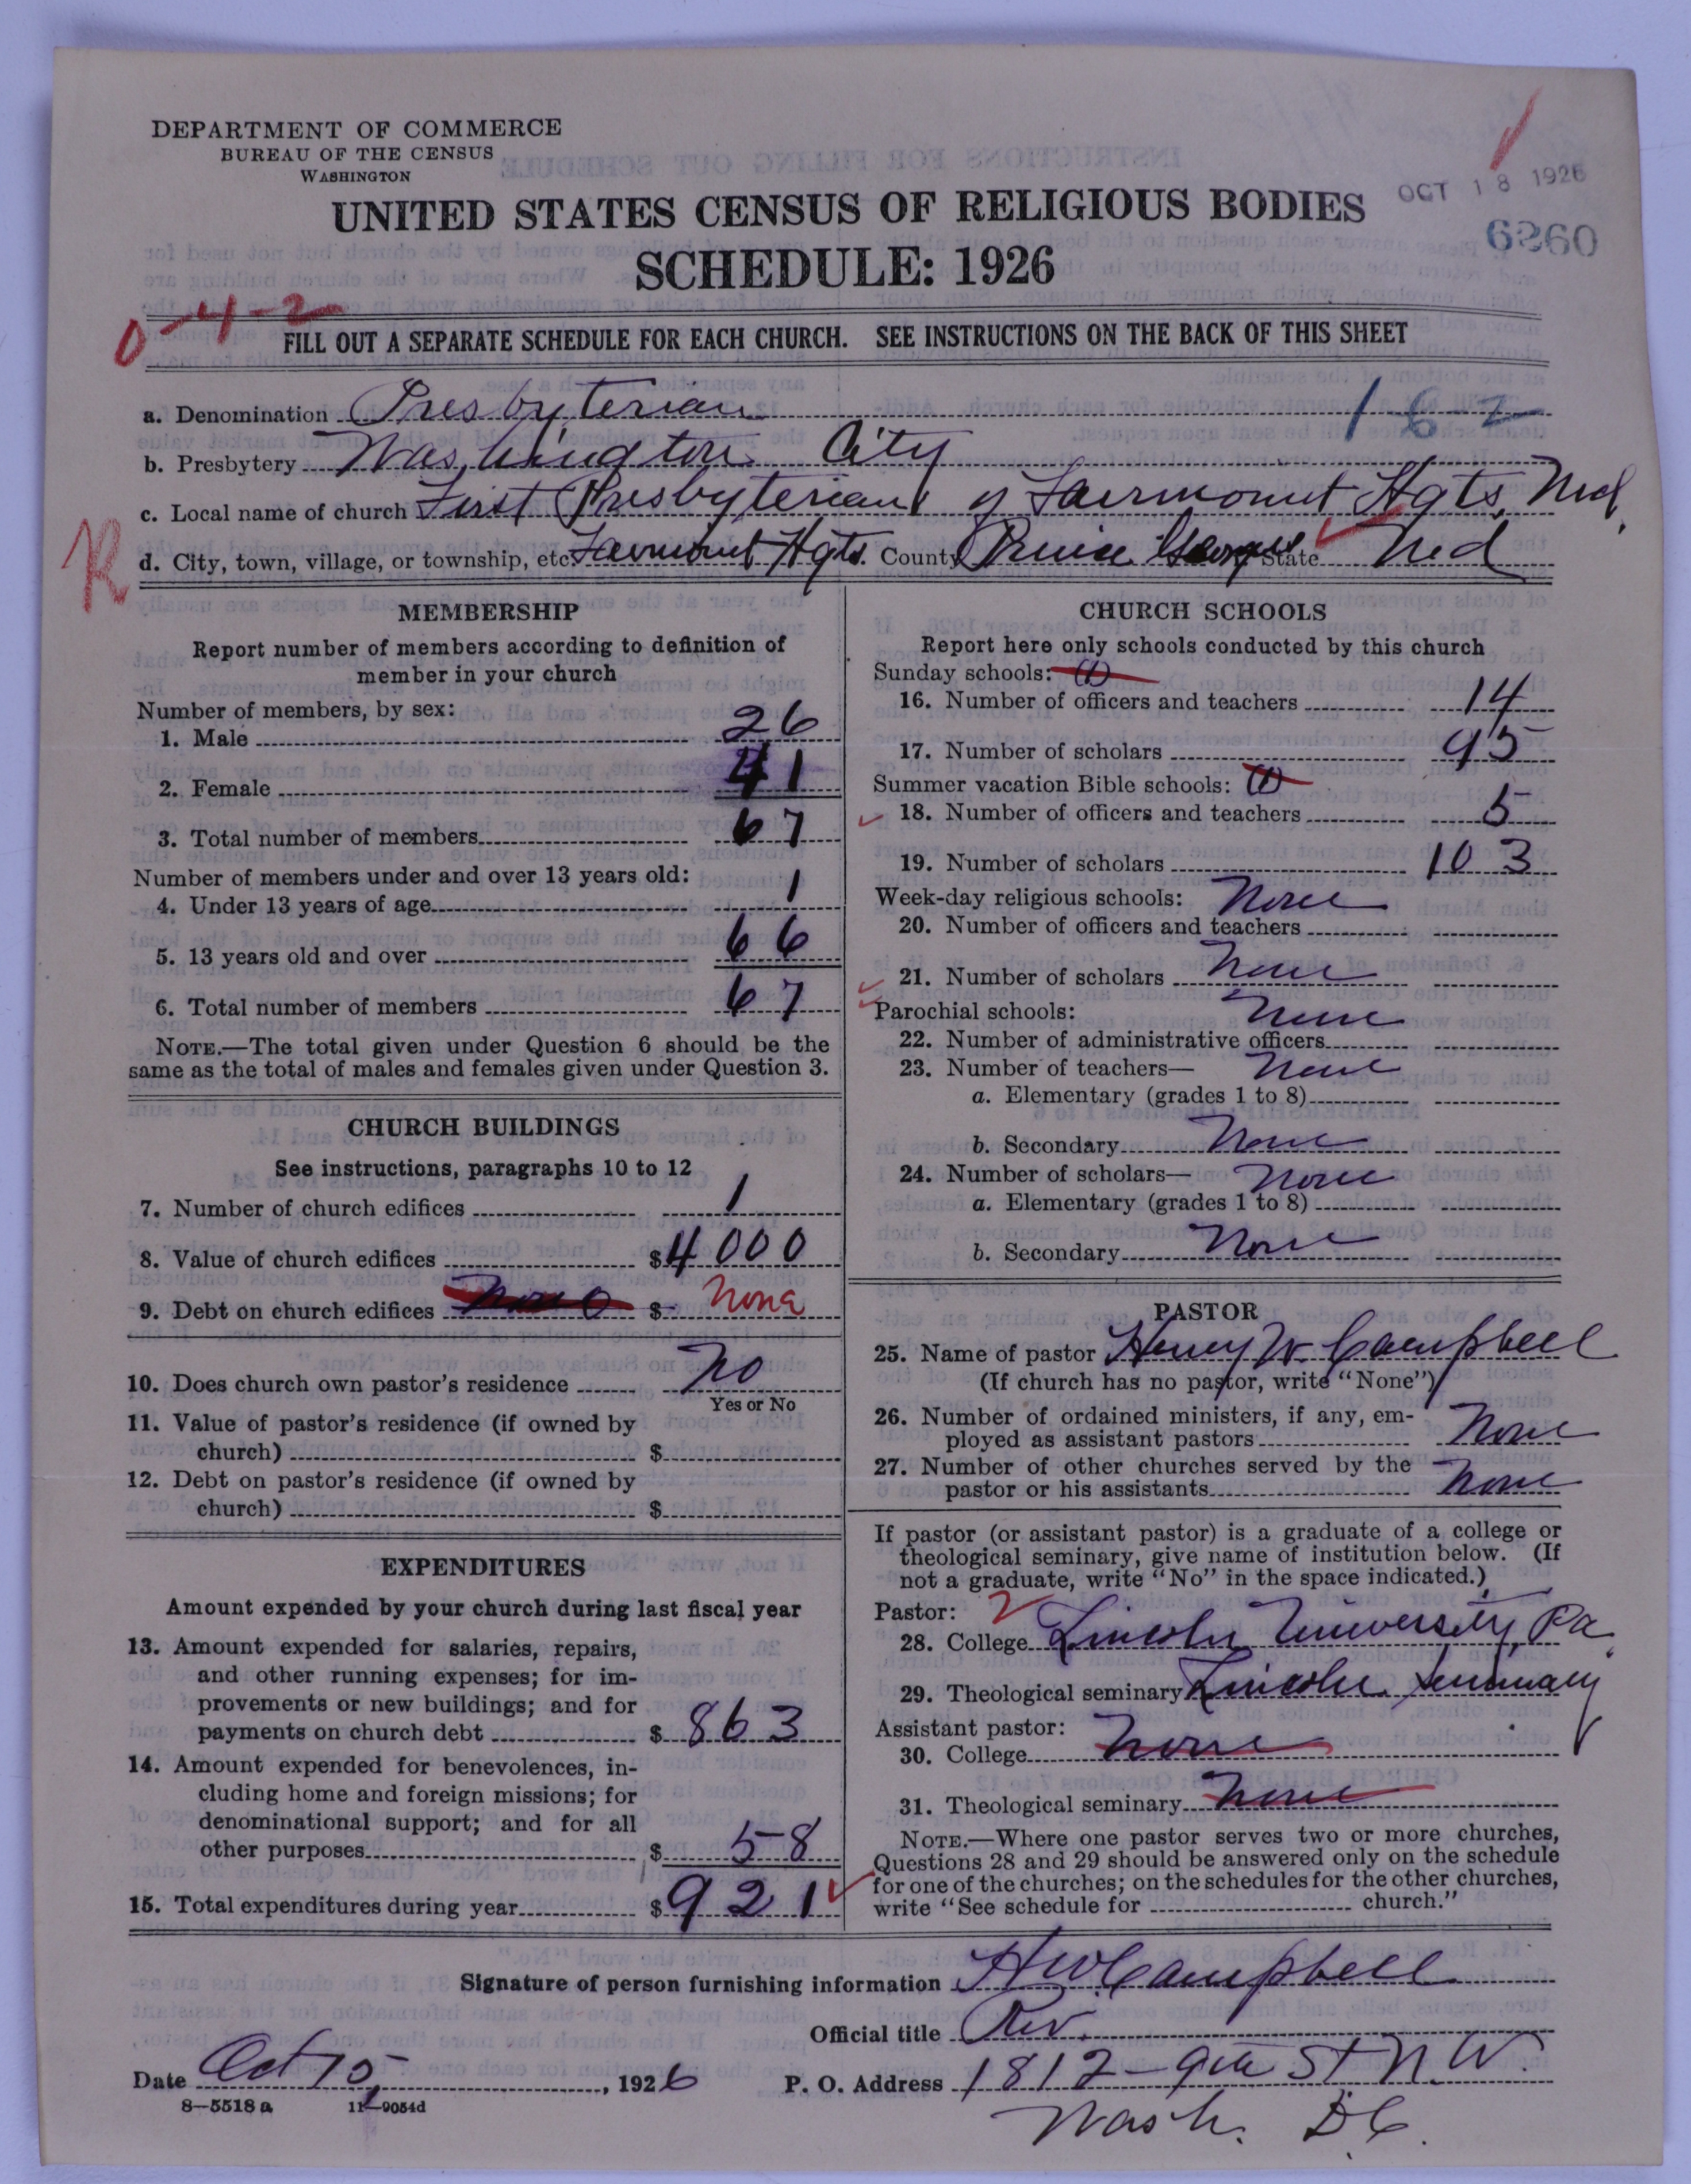 DEPARTMENT OF COMMERCE
BUREAU OF THE CENSUS
WASHINGTON
UNITED STATES CENSUS OF RELIGIOUS BODIES
OCT 18 1926
SCHEDULE: 1926
6260
0-4-2
FILL OUT A SEPARATE SCHEDULE FOR EACH CHURCH. SEE INSTRUCTIONS ON THE BACK OF THIS SHEET
a. Denomination Presbyterian 162
b. Presbytery Washington City
c. Local name of church First Presbyterian of Fairmount Hgts, Md.
R
d. City, town, village, or township, etc. Fairmount Hgts. County Prince Georges State Md
MEMBERSHIP
Report number of members according to definition of
member in your church
Number of members, by sex:
1. Male 26
2. Female 41
3. Total number of members 67
Number of members under and over 13 years old:
4. Under 13 years of age 1
5. 13 years old and over 66
6. Total number of members 67
NOTE.—The total given under Question 6 should be the
same as the total of males and females given under Question 3.
CHURCH BUILDINGS
See instructions, paragraphs 10 to 12
7. Number of church edifices 1
8. Value of church edifices $4000
9. Debt on church edifices None $ None
10. Does church own pastor's residence No
Yes or No
11. Value of pastor's residence (if owned by
church) $
12. Debt on pastor's residence (if owned by
church) $
EXPENDITURES
Amount expended by your church during last fiscal year
13. Amount expended for salaries, repairs,
and other running expenses; for im-
provements or new buildings; and for
payments on church debt $ 863
14. Amount expended for benevolences, in-
cluding home and foreign missions; for
denominational support; and for all
other purposes $ 58
15. Total expenditures during year $921
CHURCH SCHOOLS
Report here only schools conducted by this church
Sunday schools: (1)
16. Number of officers and teachers 14
17. Number of scholars 95
Summer vacation Bible schools: (1)
18. Number of officers and teachers 5
19. Number of scholars 103
Week-day religious schools: None
20. Number of officers and teachers
21. Number of scholars None
Parochial schools: None
22. Number of administrative officers
23. Number of teachers— None
a. Elementary (grades 1 to 8)
b. Secondary None
24. Number of scholars— None
a. Elementary (grades 1 to 8)
b. Secondary None
PASTOR
25. Name of pastor Henry W. Campbell
(If church has no pastor, write "None")
26. Number of ordained ministers, if any, em-
ployed as assistant pastors None
27. Number of other churches served by the
pastor or his assistants None
If pastor (or assistant pastor) is a graduate of a college or
theological seminary, give name of institution below. (If
not a graduate, write "No" in the space indicated.)
Pastor: 2
28. College Lincoln University, Pa.
29. Theological seminary Lincoln Seminary
Assistant pastor:
30. College None
31. Theological seminary None
NOTE.—Where one pastor serves two or more churches,
Questions 28 and 29 should be answered only on the schedule
for one of the churches; on the schedules for the other churches,
write "See schedule for church."
Signature of person furnishing information H W Campbell
Official title Rev.
Date Oct 15, 1926 P. O. Address 1812-9th St N.W.
8—5518a 11—9054d
Wash. D.C.